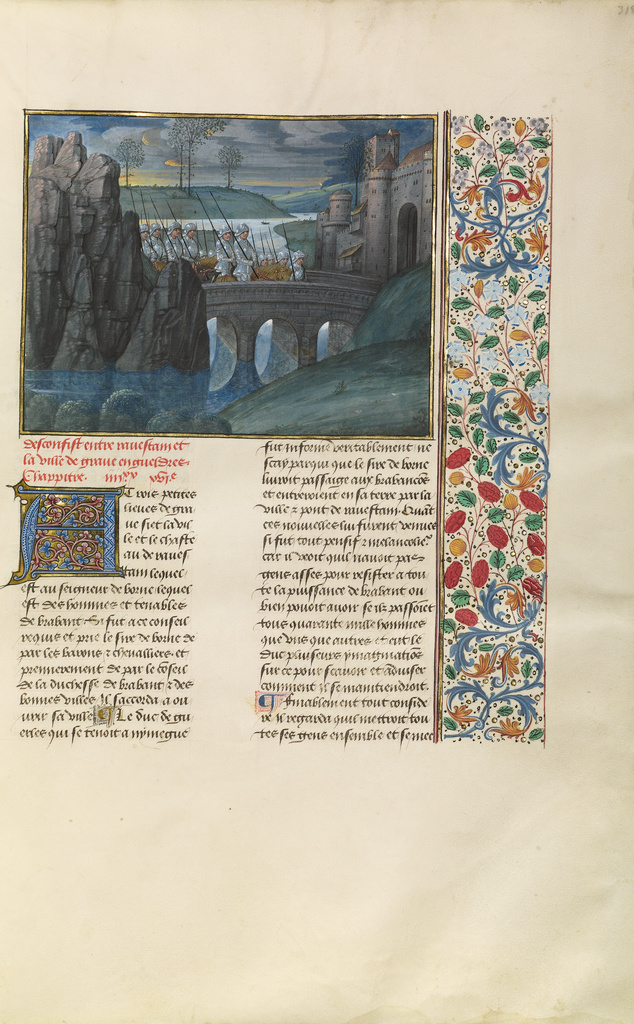 desconfist entre ravestain et
la ville de grave en gueldres
Chappitre
A Trois petites
lieues de gra
ue siet la vil
le et le chaste
au de raues
tain lequel
est au seigneur de borne lequel
est des hommes et tenables
de brabant Si fut a ce conseil
requis et prie le sire de borne de
par les barons ⁊ chevalliers et
premierement de par le cōseil
de la duchesse de brabant ⁊ des
bonnes villes Il saccorda a ou
urir sa ville Le duc de gu
erles qui se tenoit a nymegue
fut informe veritablement ne
scay par qui que le sire de borne
livroit passaige aux brabancōs
et entreroient en sa terre par la
ville ⁊ pont de ravestain Quāt
ces nouuelles lui furent venues
si fut tout pensif ⁊ melancolieux
car il veoit quil nauoit pas
gens asses pour resister a tou
te la puissance de brabant ou
bien pouoit auoir se ilz passoiēt
tous quarante mille hommes
que vns que autres et eut le
duc pluiseurs ymaginacōns
sur ce pour scauoir et aduiser
comment il se maintendroit
Finablement tout conside
re il regarda quil mettroit tou
tes ses gens ensemble et se met